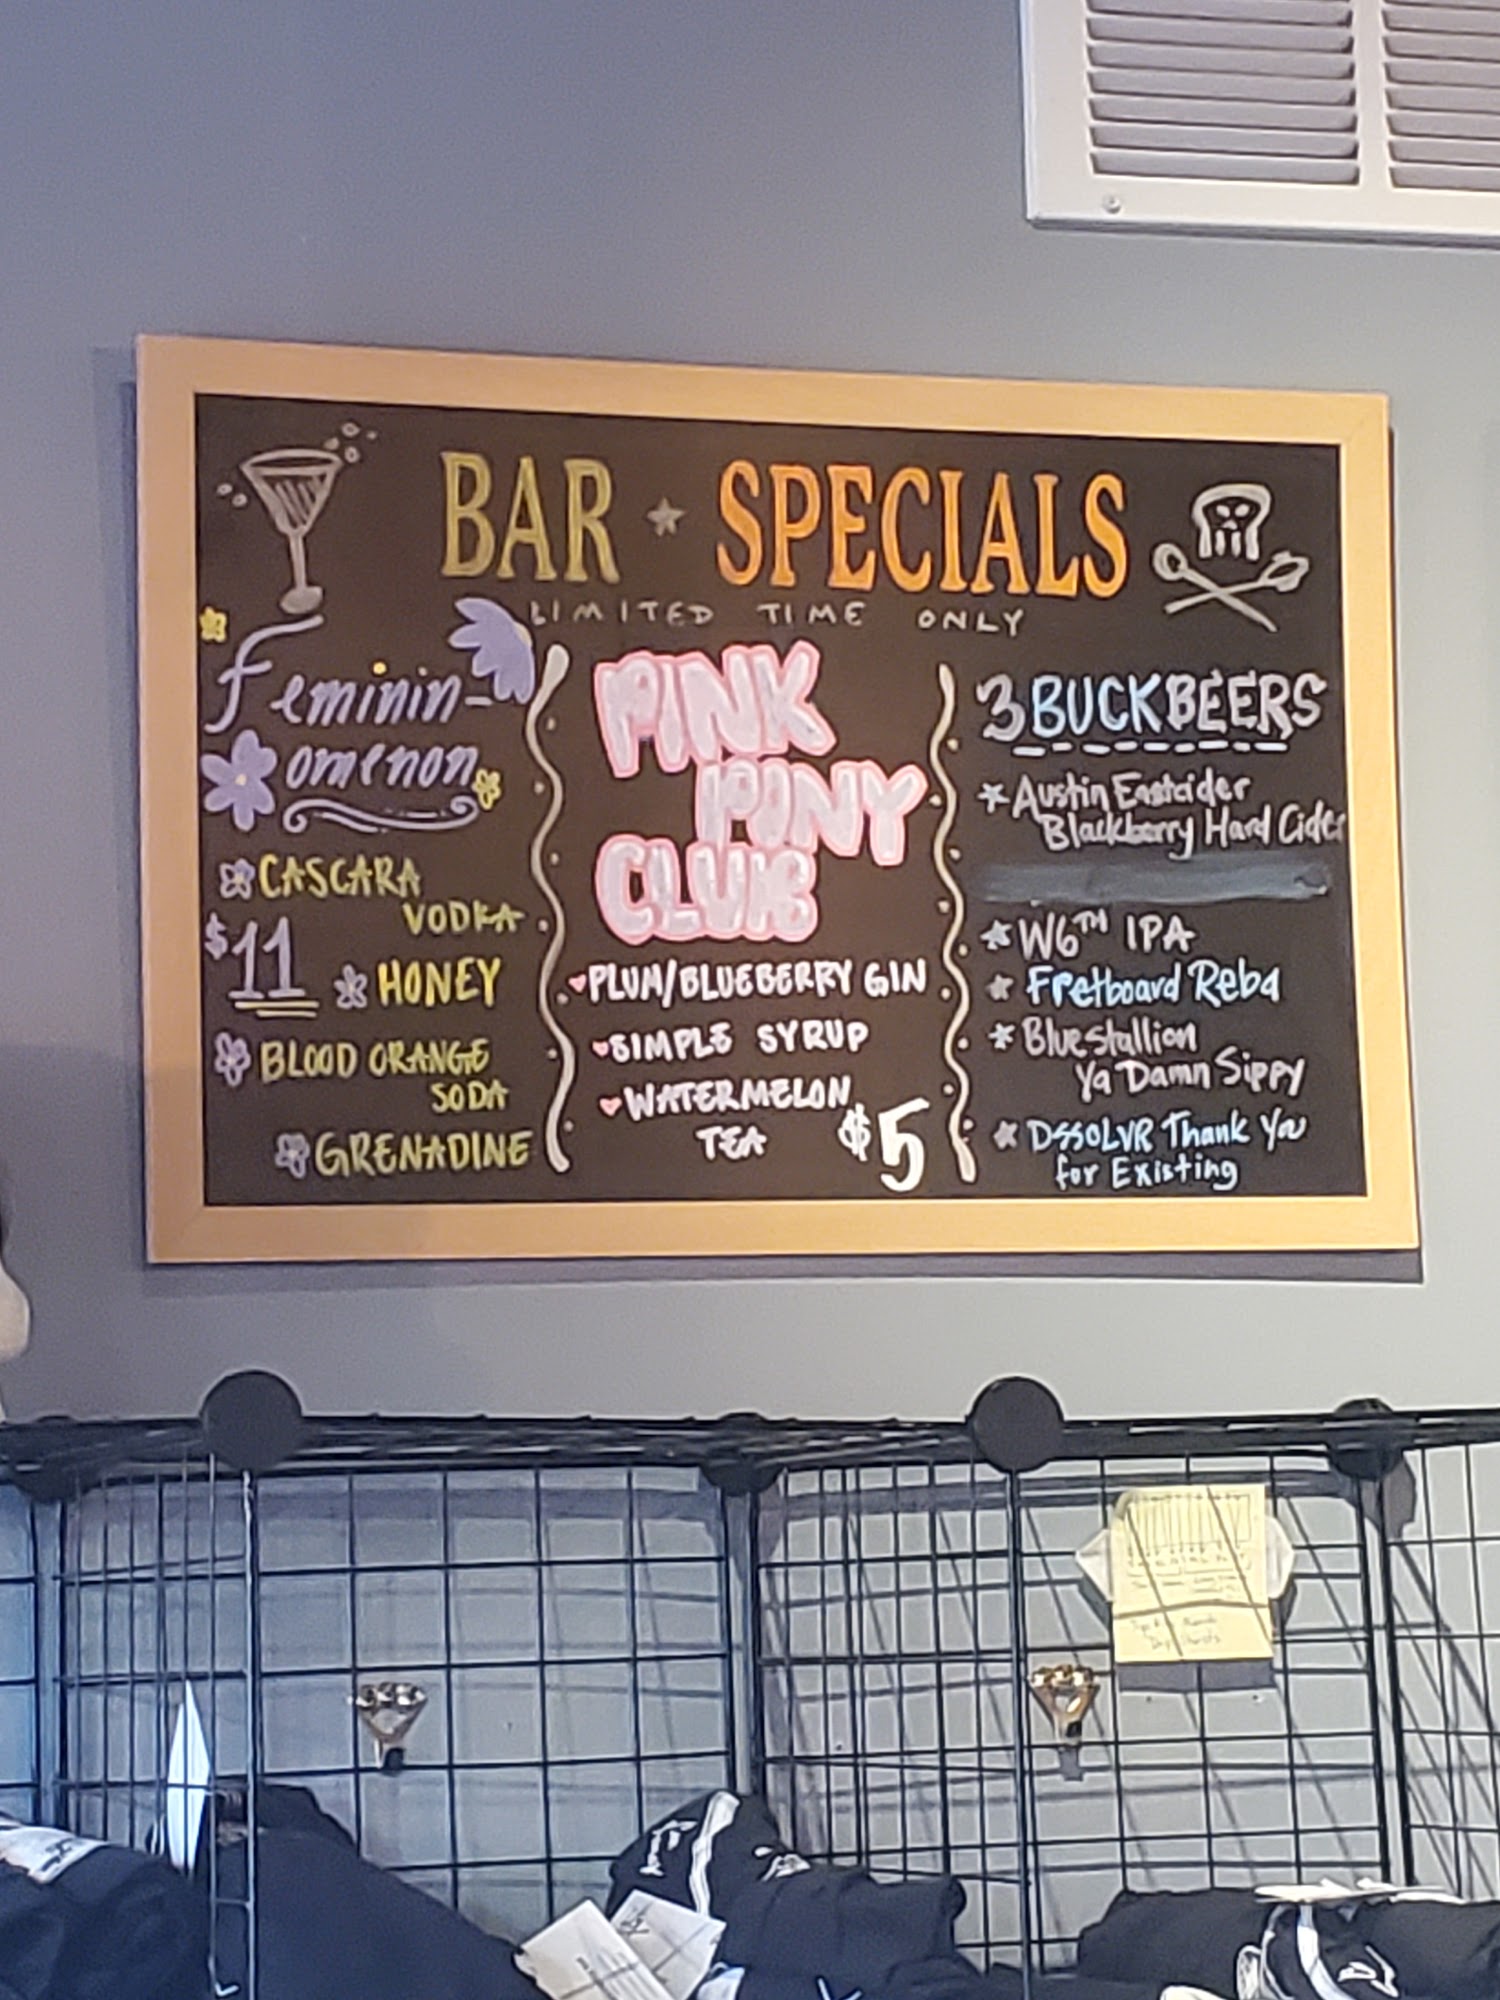 BAR ★ SPECIALS
LIMITED TIME ONLY
Feminin-
omenon
CASCARA
VODKA
$11
HONEY
BLOOD ORANGE
SODA
GRENADINE
PINK
PONY
CLUB
PLUM/BLUEBERRY GIN
SIMPLE SYRUP
WATERMELON
TEA
$5
3 BUCK BEERS
Austin Eastcider
Blackberry Hard Cider
W6TH IPA
Fretboard Reba
Blue Stallion
Ya Damn Sippy
DSSOLVR Thank You
for Existing